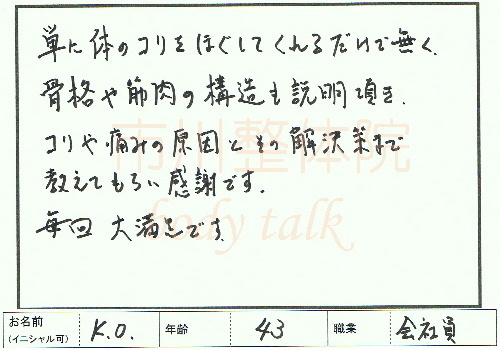 単に体のコリをほぐしてくれるだけで無く、
骨格や筋肉の構造も説明頂き、
コリや痛みの原因とその解決策まで
教えてもらい感謝です。
毎回 大満足です。
市川整体院
body talk
お名前
(イニシャル可)
K.O.
年齢
43
職業
会社員